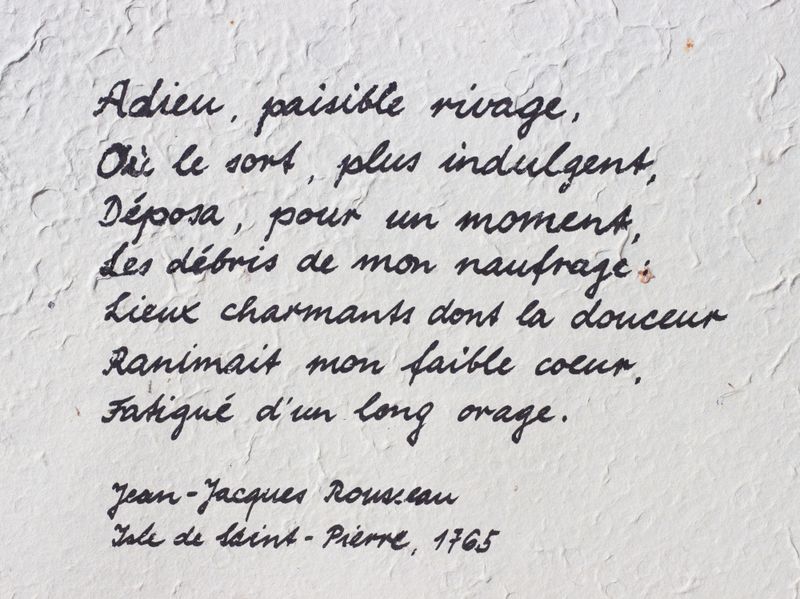 Adieu, paisible rivage,
Où le sort, plus indulgent,
Déposa, pour un moment,
Les débris de mon naufrage:
Lieux charmants dont la douceur
Ranimait mon faible coeur,
Fatigué d'un long orage.
Jean-Jacques Rousseau
Isle de Saint-Pierre, 1765